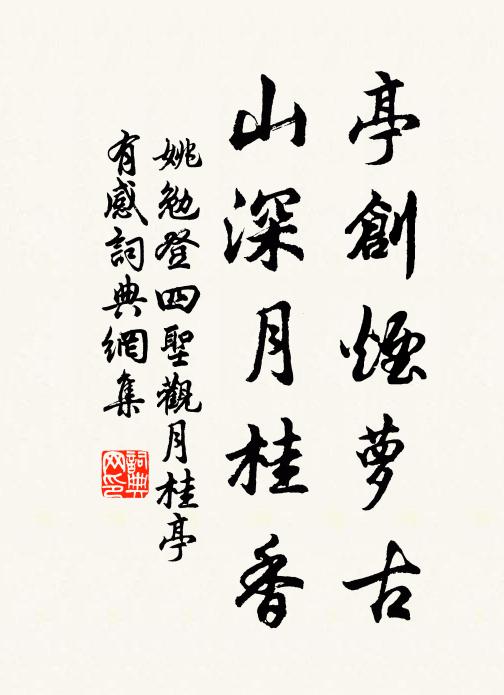 亭創煙夢古
山深月桂香
姚勉登四聖觀月桂亭
有感詞典網集
詞典
网印